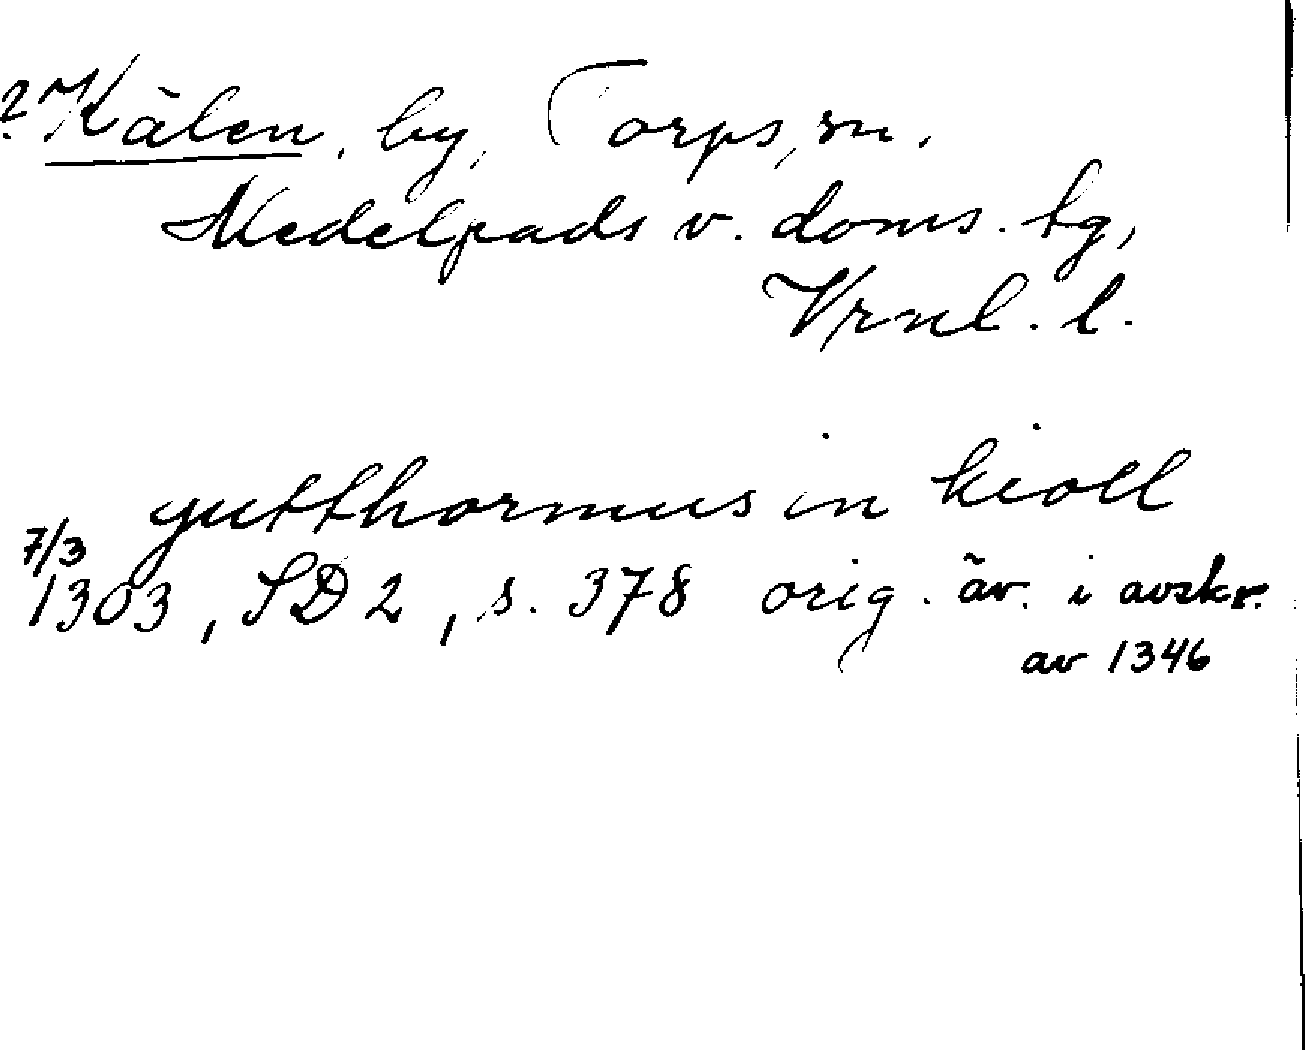 ? Kälen, by, Torps, sn.
Medelpads v. doms. hg,
Vrnl. l.
gutthormus in kioll
7/3
1303, SD 2, s. 378 orig. äv. i avskr.
av 1346